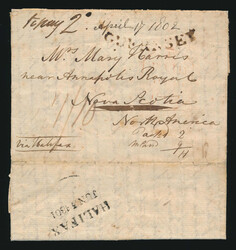 to pay 2d April 17 1802
GUERNSEY
Mrs Mary Harris
near Annapolis Royal
Nova Scotia
North America
via Halifax
Packt 2
Inland 9
11
HALIFAX